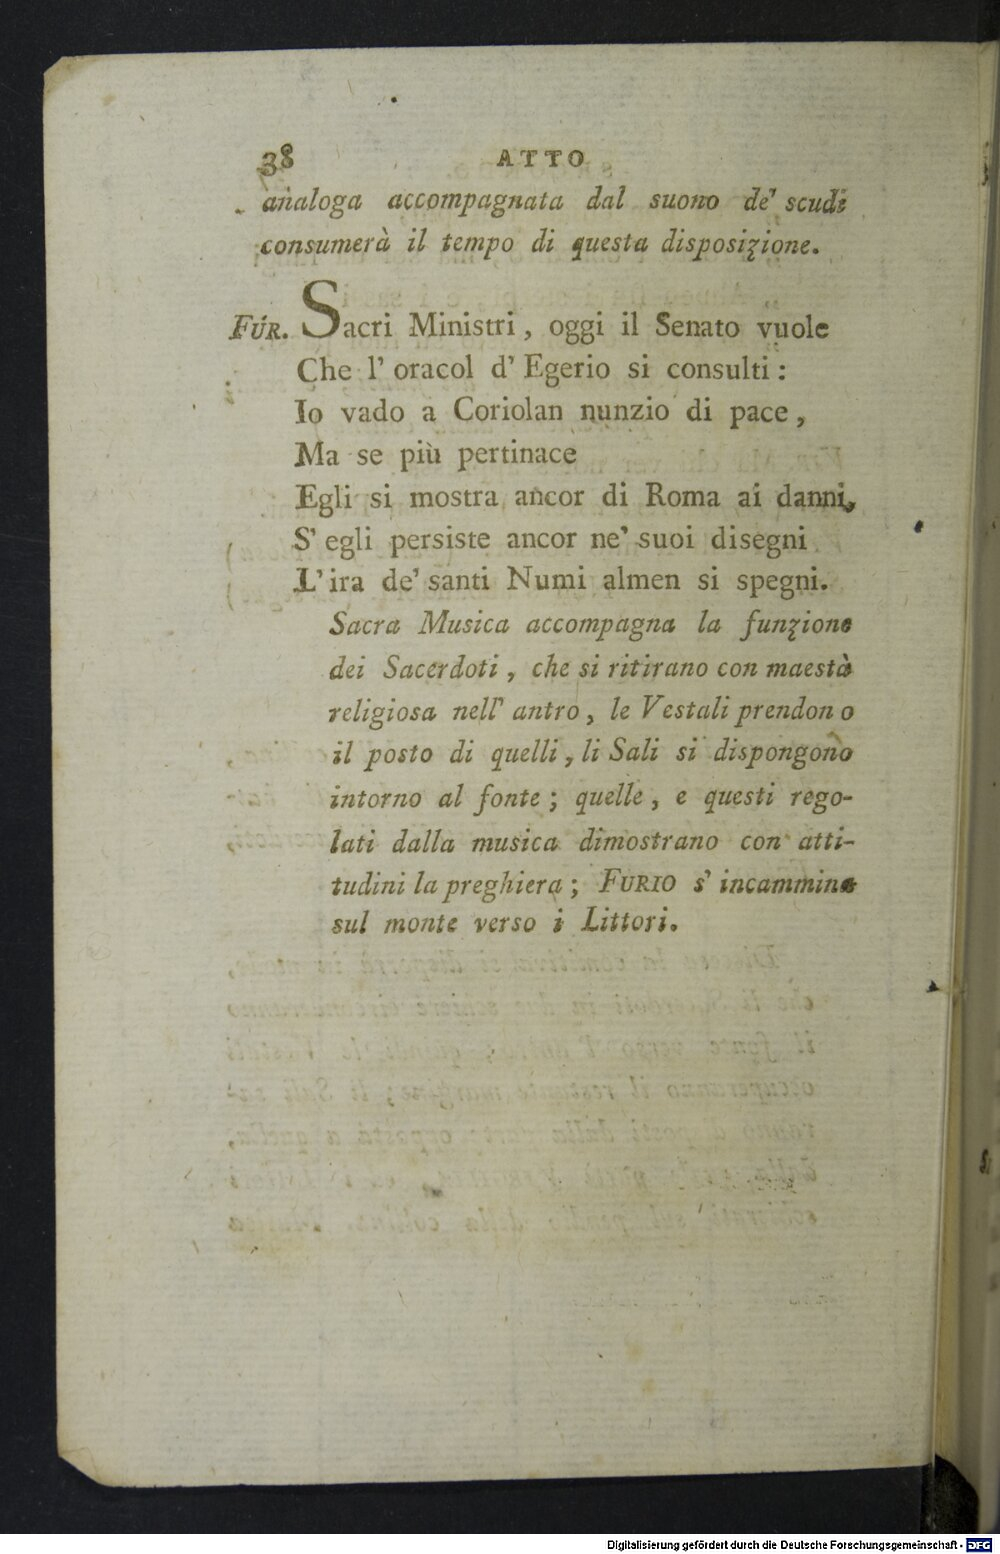 38 ATTO
analoga accompagnata dal suono de' scudi
consumerà il tempo di questa disposizione.
FUR. Sacri Ministri, oggi il Senato vuole
Che l' oracol d' Egerio si consulti:
Io vado a Coriolan nunzio di pace,
Ma se più pertinace
Egli si mostra ancor di Roma ai danni,
S' egli persiste ancor ne' suoi disegni
L' ira de' santi Numi almen si spegni.
Sacra Musica accompagna la funzione
dei Sacerdoti, che si ritirano con maestà
religiosa nell' antro, le Vestali prendono
il posto di quelli, li Sali si dispongono
intorno al fonte; quelle, e questi rego-
lati dalla musica dimostrano con atti-
tudini la preghiera; FURIO s' incammina
sul monte verso i Littori.
Digitalisierung gefördert durch die Deutsche Forschungsgemeinschaft - DFG